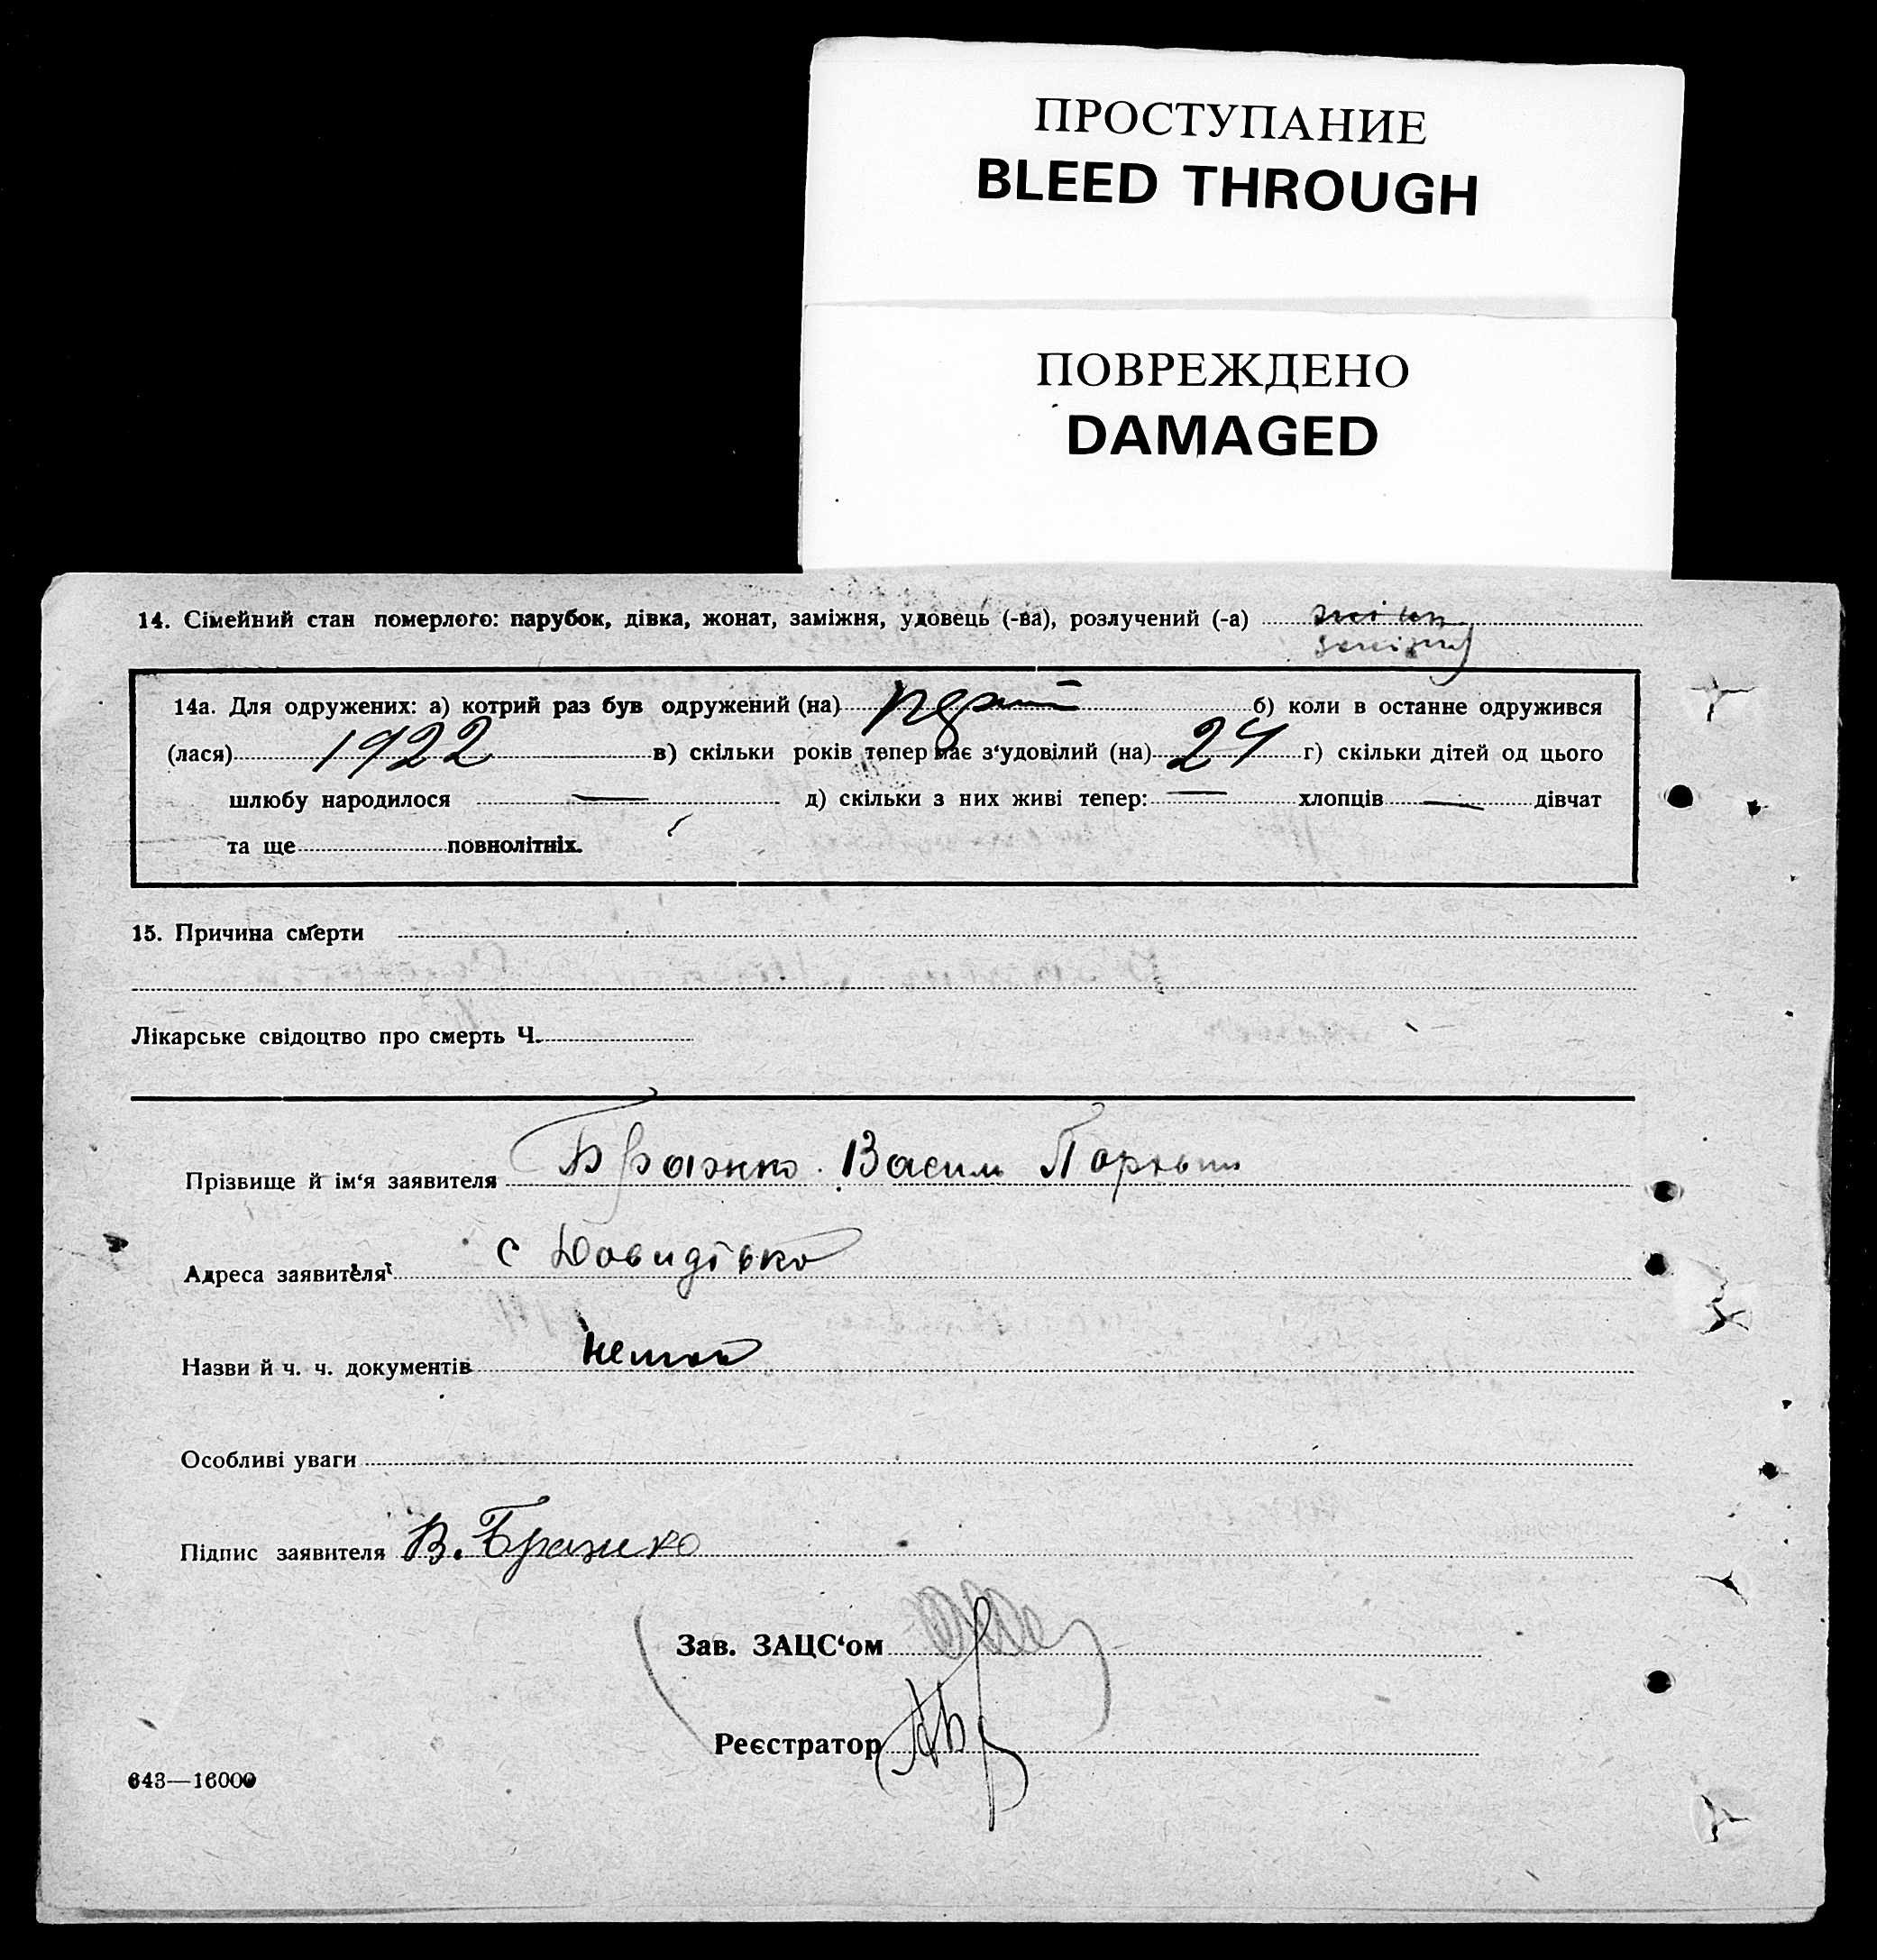 ПРОСТУПАНИЕ
BLEED THROUGH
ПОВРЕЖДЕНО
DAMAGED
14. Сімейний стан померлого: парубок, дівка, жонат, заміжня, удовець (-ва), розлучений (-а)
14а. Для одружених: а) котрий раз був одружений (на) б) коли в останне одружився
(лася) 1922 в) скільки років тепер має з‘удовілий (на) 24 г) скільки дітей од цього
шлюбу народилося — д) скільки з них живі тепер: — хлопців — дівчат
та ще повнолітніх.
15. Причина смерти
Лікарське свідоцтво про смерть Ч.
Прізвище й ім‘я заявителя Бражко Васил
Адреса заявителя с Довидівка
Назви й ч. ч. документів немає
Особливі уваги
Підпис заявителя В. Бражко
Зав. ЗАЦС‘ом
Реєстратор
643—16000